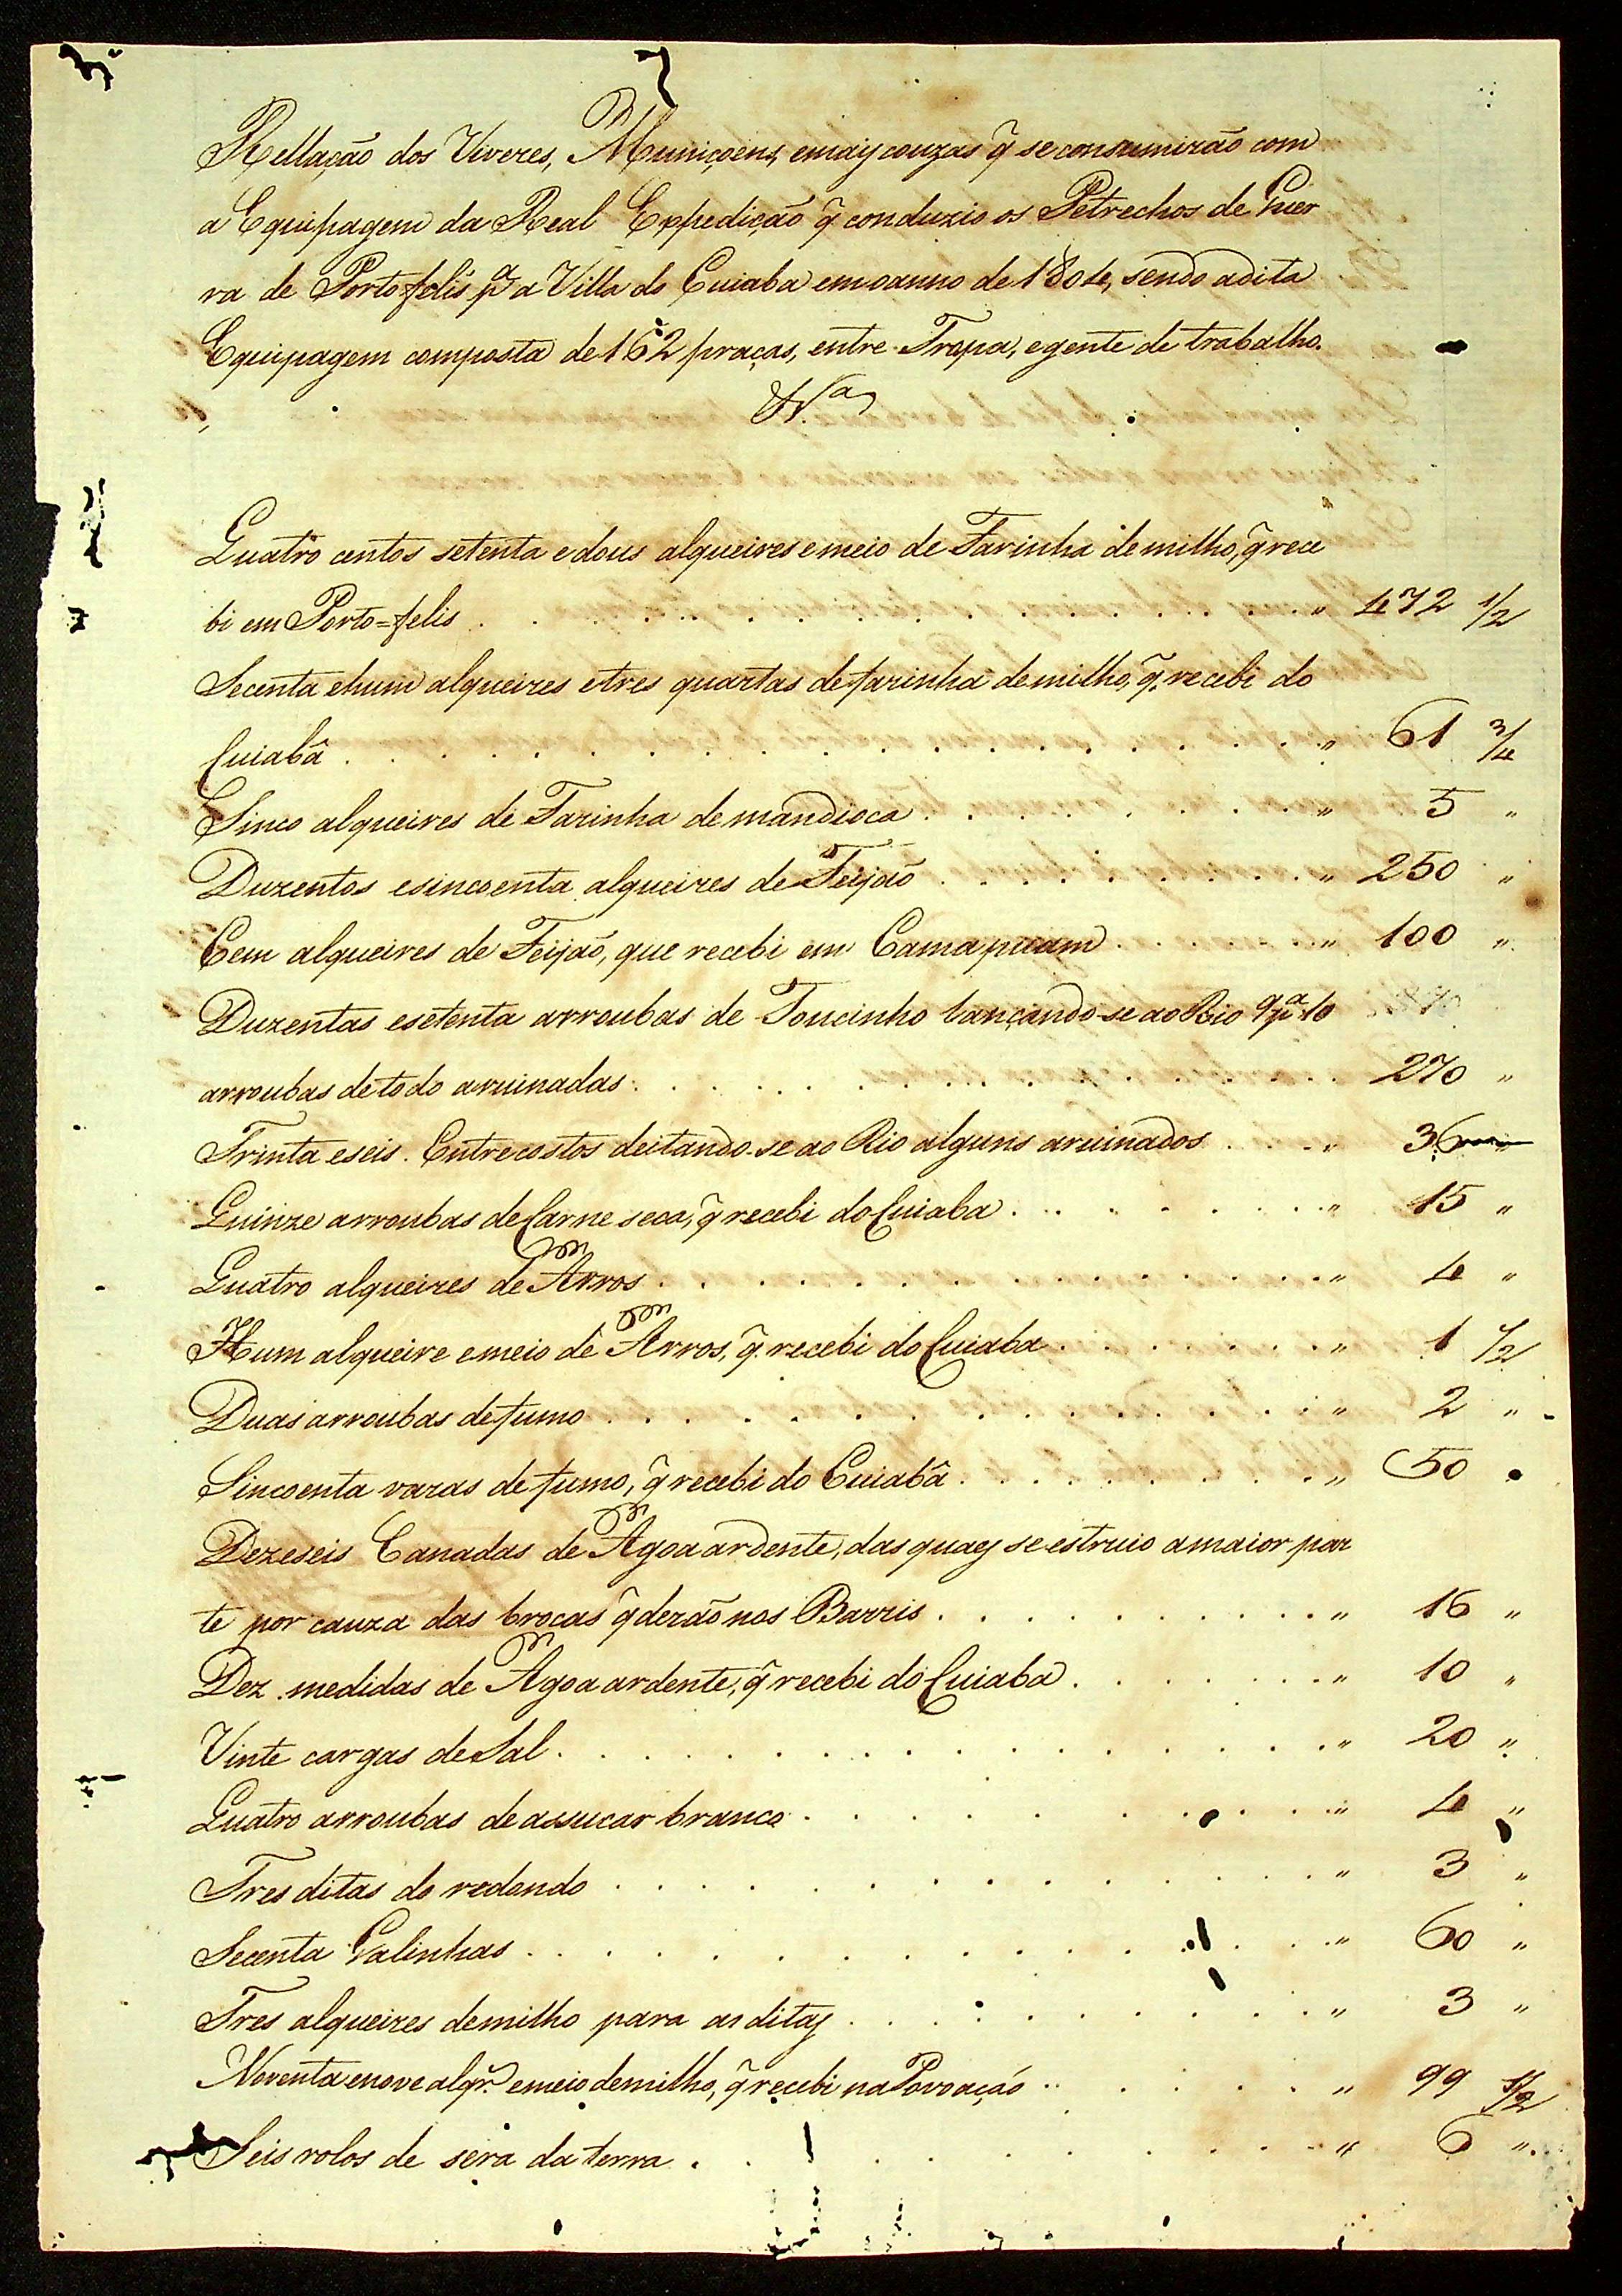 Rellação dos Viveres, Muniçoens, emais couzas q̃ se consumirão com
a Equipagem da Real Expedição q̃ conduzio os Petrechos de Guer
ra de Porto felis pª a Villa do Cuiaba emoanno de 1804, sendo adita
Equipagem composta de 162 praças, entre Tropa, egente de trabalho.
Quatro centos setenta edous alqueires emeio de Farinha de milho, q̃ rece
bi em Porto=felis . . . " 472 1/2
Secenta ehum alqueires etres quartas de farinha demilho, q̃ recebi do
Cuiabâ . . . " 61 3/4
Sinco alqueires de Farinha de mandioca . . . " 5 "
Duzentos esincoenta alqueires de Feijão . . . " 250 "
Cem alqueires de Feijaõ, que recebi em Camapuam . . . " 100 "
Duzentas esetenta arroubas de Toucinho lançando-se ao Rio 10
arroubas detodo arruinadas . . . 270 "
Trinta eseis Entrecostos deitando-se ao Rio alguns aruinados . . . " 36
Quinze arroubas de Carne seca, q̃ recebi do Cuiaba . . . " 15 "
Quatro alqueires de Arros . . . " 4 "
Hum alqueire emeio de Arros, q̃ recebi do Cuiaba . . . " 1 1/2
Duas arroubas defumo . . . " 2 "
Sincoenta varas de fumo, q̃ recebi do Cuiabâ . . . " 50
Dezeseis Canadas de Agoaardente, das quaes se estruio amaior par
te por cauza das brocas q̃ deraõ nos Barris . . . " 16 "
Dez medidas de Agoaardente, q̃ recebi do Cuiaba . . . " 10 "
Vinte cargas deSal . . . " 20 "
Quatro arroubas de assucar branco . . . " 4 "
Tres ditas do redondo . . . " 3 "
Secenta Galinhas . . . " 60 "
Tres alqueires demilho para as ditas . . . " 3 "
Noventaenove alqr.ˢ emeio demilho, q̃ recebi na Povoaçaõ . . . " 99 1/2
Seis rolos de sera da terra . . . " 6 "